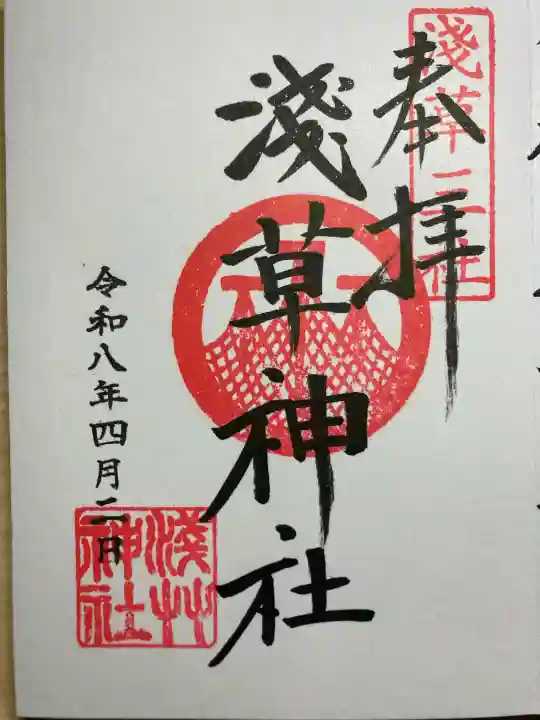 奉拝
淺草三社
淺草神社
令和八年四月二日
淺艸
神社